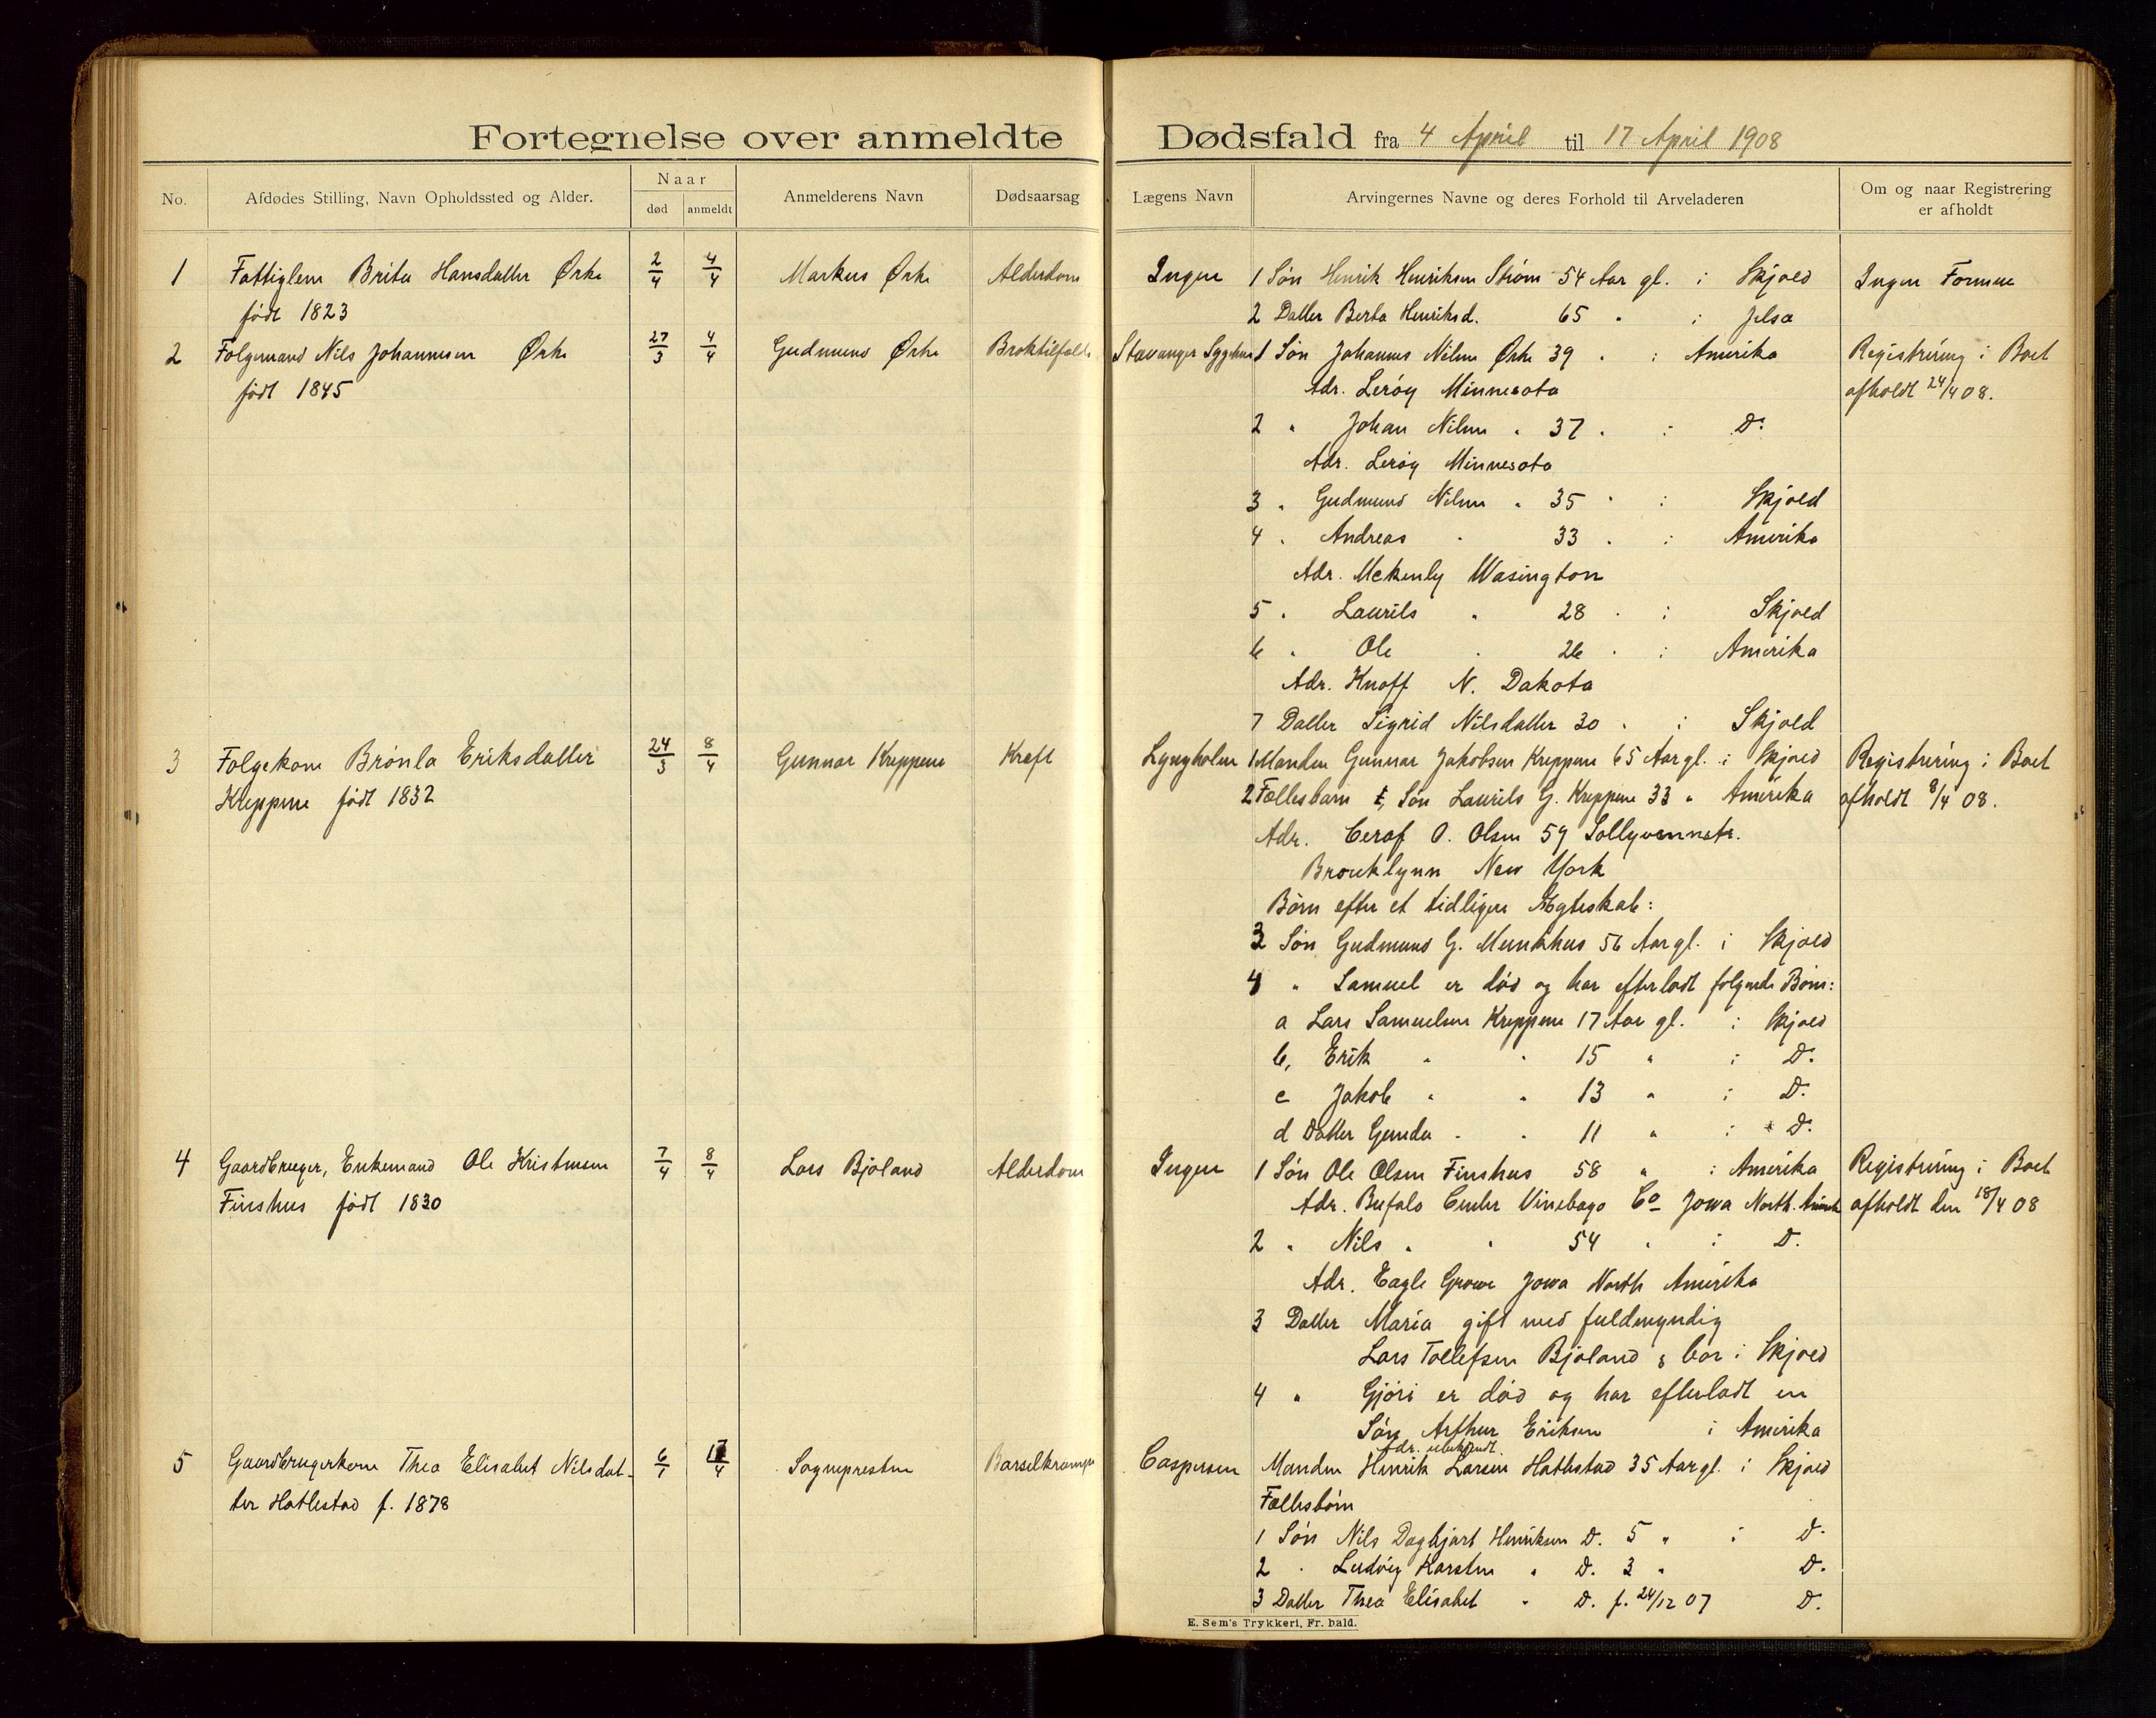 Fortegnelse over anmeldte Dødsfald fra 4 April til 17 April 1908
No.
Afdødes Stilling, Navn Opholdssted og Alder.
Naar
død
anmeldt
Anmelderens Navn
Dødsaarsag
Lægens Navn
Arvingernes Navne og deres Forhold til Arveladeren
Om og naar Registrering
er afholdt
1 Fattiglem Brita Hansdatter Ørke 2/4 4/4 Markus Ørke Alderdom Ingen 1 Søn Henrik Henriksen Strøm 54 Aar gl. i Skjold Ingen Formue
født 1823 2 Datter Berta Henriksd. 65 " i Jelsa
2 Folgemand Nils Johannesen Ørke 27/3 4/4 Gudmund Ørke Broktilfælde Stavanger Sygehus 1 Søn Johannes Nilsen Ørke 39 " i Amerika Registrering i Boet
født 1845 Adr. Lerøy Minnesota afholdt 24/4 08.
2 " Johan Nilsen " 37 " i D.
Adr. Lerøy Minnesota
3 " Gudmund Nilsen " 35 " i Skjold
4 " Andreas " 33 " i Amerika
Adr. Mekenly Wasington
5 " Laurits " 28 " i Skjold
6 " Ole " 26 " i Amerika
Adr. Knoff N. Dakota
7 Datter Sigrid Nilsdatter 30 " i Skjold
3 Folgekone Brønla Eriksdatter 24/3 8/4 Gunnar Kreppene Kreft Lyngholm 1 Manden Gunnar Jakobsen Kreppene 65 Aar gl. i Skjold Registrering i Boet
Kreppene født 1832 2 Fællesbarn Søn Laurits G. Kreppene 33 " Amerika afholdt 8/4 08.
Adr. Cerof O. Olsen 59 Sollyvannstr.
Brouklynn New York
Børn efter et tidligere Ægteskab:
3 Søn Gudmund G. Munkhus 56 Aar gl. i Skjold
4 " Samuel er død og har efterladt følgende Børn:
a Lars Samuelsen Kreppene 17 Aar gl. i Skjold
b, Erik " " 15 " i D.
c Jakob " " 13 " i D.
d Datter Gunda " " 11 " i D.
4 Gaardbruger, Enkemand Ole Kristensen 7/4 8/4 Lars Bjoland Alderdom Ingen 1 Søn Ole Olsen Finshus 58 " i Amerika Registrering i Boet
Finshus født 1830 Adr. Bufalo Center Vinebago Co Jowa North. Amerik afholdt den 18/4 08
2 " Nils " " 54 " i D.
Adr. Eagle Growe Jowa North Amerika
3 Datter Maria gift med fuldmyndig
Lars Tollefsen Bjoland bor i Skjold
4 " Gjøri er død og har efterladt en
Søn Arthur Eriksen i Amerika
Adr. ubekjendt.
5 Gaardbrugerkone Thea Elisabet Nilsdat- 6/1 17/4 Sognepresten Barselkrampe Caspersen Manden Henrik Larsen Hatlestad 35 Aar gl. i Skjold
ter Hatlestad f. 1878 Fællesbørn
1 Søn Nils Dagbjart Henriksen D. 5 " i D.
2 " Ludvig Karsten " D. 3 " D.
3 Datter Thea Elisabet " D. f. 24/12 07 D.
E. Sem's Trykkeri, Fr. hald.